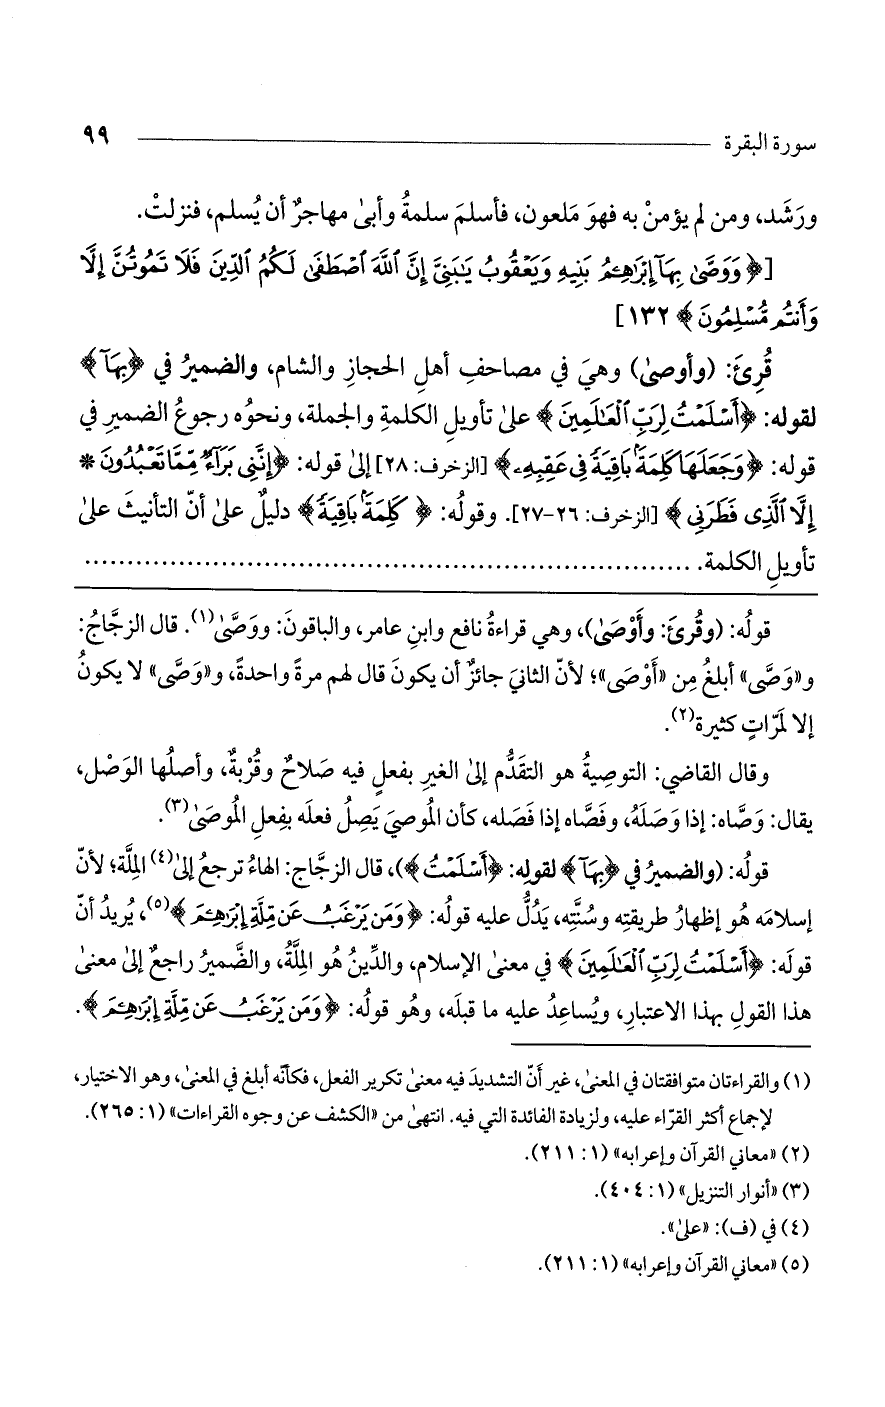 سورة البقرة ٩٩
ورَشَد، ومن لم يؤمنْ به فهوَ مَلعون، فأسلمَ سلمةُ وأبىٰ مهاجرٌ أن يُسلم، فنزلتْ.
[﴿ وَوَصَّىٰ بِهَآ إِبْرَٰهِـۧمُ بَنِيهِ وَيَعْقُوبُ يَٰبَنِىَّ إِنَّ ٱللَّهَ ٱصْطَفَىٰ لَكُمُ ٱلدِّينَ فَلَا تَمُوتُنَّ إِلَّا
وَأَنتُم مُّسْلِمُونَ ﴾ ١٣٢]
قُرِئَ: (وأوصىٰ) وهيَ في مصاحفِ أهلِ الحجازِ والشام، والضميرُ في ﴿بِهَآ﴾
لقوله: ﴿أَسْلَمْتُ لِرَبِّ ٱلْعَٰلَمِينَ ﴾ علىٰ تأويلِ الكلمةِ والجملة، ونحوُه رجوعُ الضميرِ في
قوله: ﴿وَجَعَلَهَا كَلِمَةًۢ بَاقِيَةً فِى عَقِبِهِۦ﴾ [الزخرف: ٢٨] إلىٰ قوله: ﴿إِنَّنِى بَرَآءٌ مِّمَّا تَعْبُدُونَ *
إِلَّا ٱلَّذِى فَطَرَنِى ﴾ [الزخرف: ٢٦-٢٧]. وقولُه: ﴿ كَلِمَةًۢ بَاقِيَةً﴾ دليلٌ علىٰ أنّ التأنيثَ علىٰ
تأويلِ الكلمة. ........................................................................
قولُه: (وقُرِئَ: وأَوْصَىٰ)، وهي قراءةُ نافع وابنِ عامر، والباقونَ: ووَصَّىٰ(١). قال الزجَّاجُ:
و«وَصَّى» أبلغُ مِن «أَوْصَى»؛ لأنّ الثانيَ جائزٌ أن يكونَ قال لهم مرةً واحدةً، و«وَصَّى» لا يكونُ
إلا لمَرّاتٍ كثيرة(٢).
وقال القاضي: التوصِيةُ هو التقَدُّم إلىٰ الغيرِ بفعلٍ فيه صَلاحٌ وقُرْبةٌ، وأصلُها الوَصْل،
يقال: وَصَّاه: إذا وَصَلَهُ، وفَصَّاه إذا فَصَله، كأن المُوصيَ يَصِلُ فعلَه بفِعلِ المُوصَىٰ(٣).
قولُه: (والضميرُ في ﴿بِهَآ﴾ لقولِه: ﴿أَسْلَمْتُ ﴾)، قال الزجَّاج: الهاءُ ترجعُ إلىٰ(٤) المِلَّة؛ لأنّ
إسلامَه هُو إظهارُ طريقتِه وسُنَّتِه، يَدُلُّ عليه قولُه: ﴿ وَمَن يَرْغَبُ عَن مِّلَّةِ إِبْرَٰهِـۧمَ ﴾(٥)، يُريدُ أنّ
قولَه: ﴿أَسْلَمْتُ لِرَبِّ ٱلْعَٰلَمِينَ ﴾ في معنىٰ الإسلام، والدِّينُ هُو المِلَّةُ، والضَّميرُ راجعٌ إلىٰ معنىٰ
هذا القولِ بهذا الاعتبارِ، ويُساعِدُ عليه ما قبلَه، وهُو قولُه: ﴿وَمَن يَرْغَبُ عَن مِّلَّةِ إِبْرَٰهِـۧمَ ﴾.
(١) والقراءتان متوافقتان في المعنىٰ، غير أنّ التشديدَ فيه معنىٰ تكرير الفعل، فكأنّه أبلغ في المعنىٰ، وهو الاختيار،
لإجماع أكثر القرّاء عليه، ولزيادة الفائدة التي فيه. انتهىٰ من «الكشف عن وجوه القراءات» (١: ٢٦٥).
(٢) «معاني القرآن وإعرابه» (١: ٢١١).
(٣) «أنوار التنزيل» (١: ٤٠٤).
(٤) في (ف): «علىٰ».
(٥) «معاني القرآن وإعرابه» (١: ٢١١).